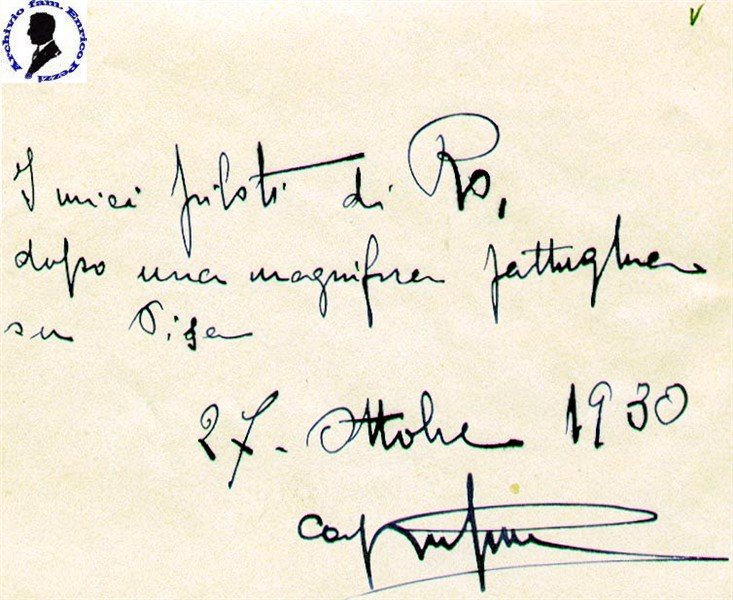 Archivio fam. Enrico Pezzi
V
I miei piloti di Ro,
dopo una magnifica pattuglia
su Pisa
27. Ottobre 1930